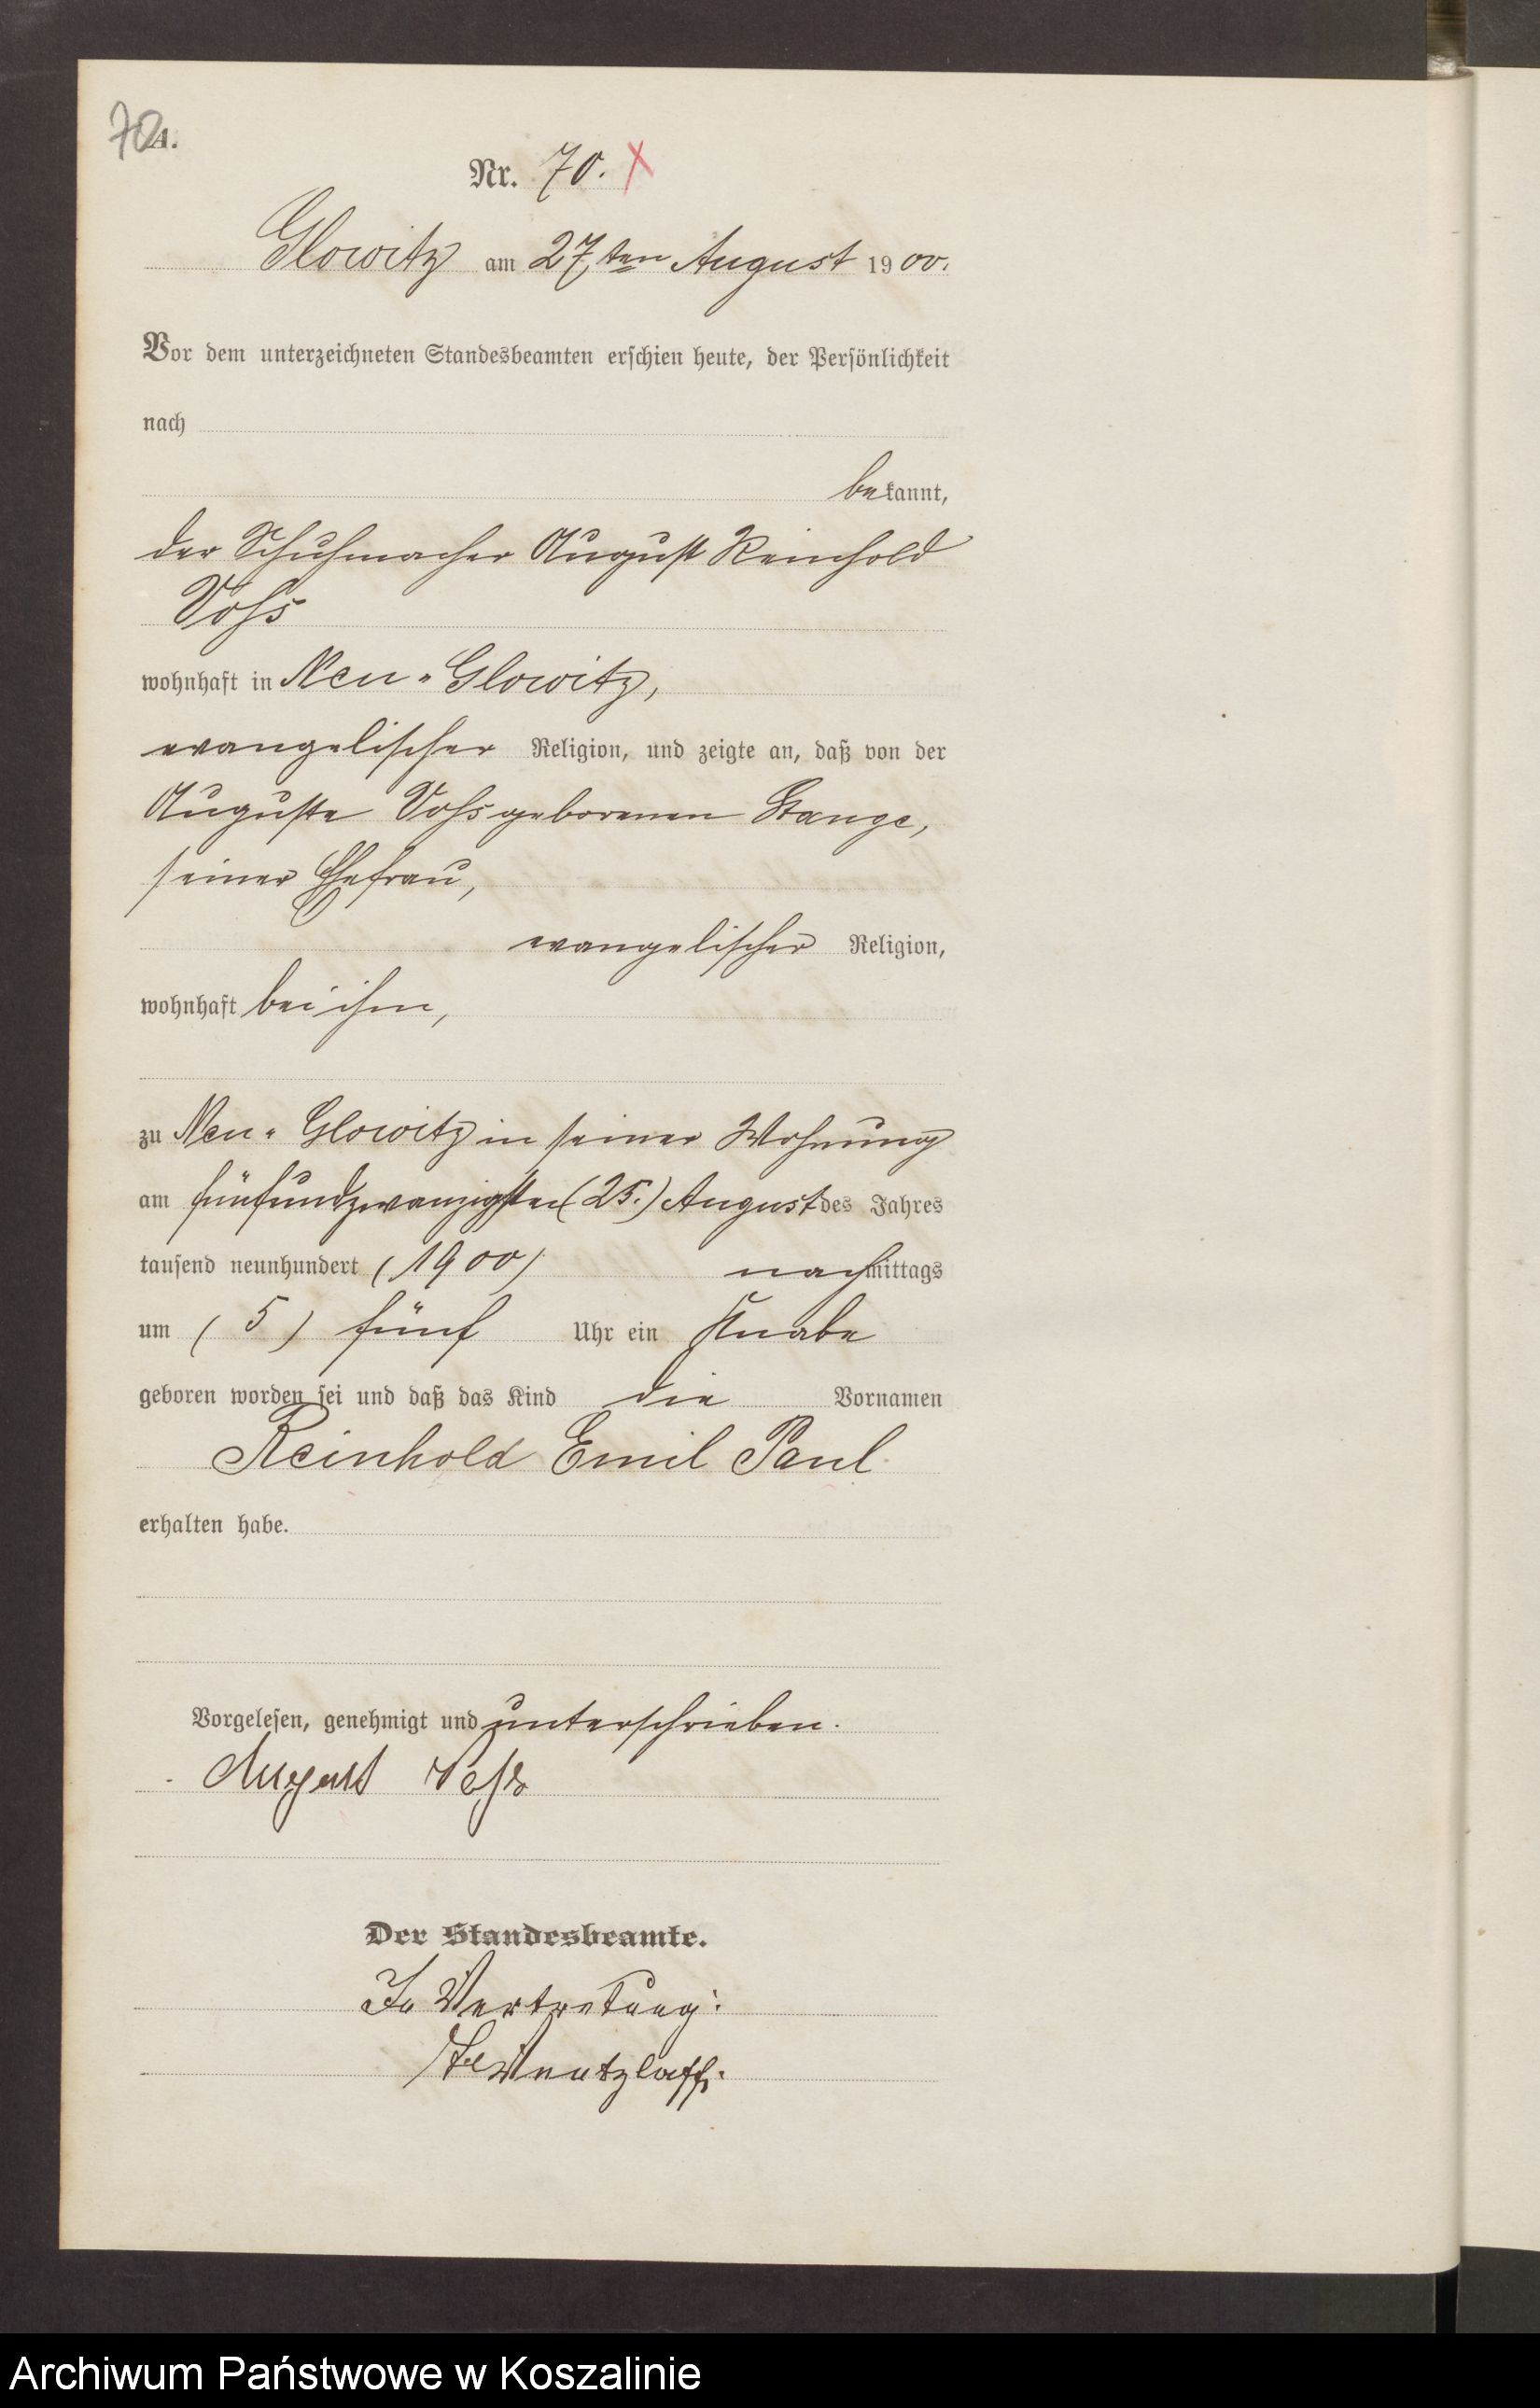 70
A.
Nr. 70. X
Glowitz am 27ten August 1900.
Vor dem unterzeichneten Standesbeamten erschien heute, der Persönlichkeit
nach
bekannt,
der Schuhmacher August Reinhold
Voß
wohnhaft in Neu-Glowitz,
evangelischer Religion, und zeigte an, daß von der
Auguste Voß geborenen Stange,
seiner Ehefrau,
evangelischer Religion,
wohnhaft bei ihm,
zu Neu-Glowitz in seiner Wohnung
am fünfundzwanzigsten (25.) August des Jahres
tausend neunhundert (1900) nachmittags
um (5) fünf Uhr ein Knabe
geboren worden sei und daß das Kind die Vornamen
Reinhold Emil Paul
erhalten habe.
Vorgelesen, genehmigt und unterschrieben.
August Voß
Der Standesbeamte.
In Vertretung:
Wentzlaff.
Archiwum Państwowe w Koszalinie